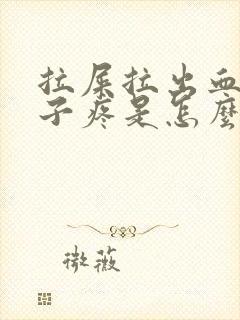 拉屎拉出血
子疼是怎麼
微薇